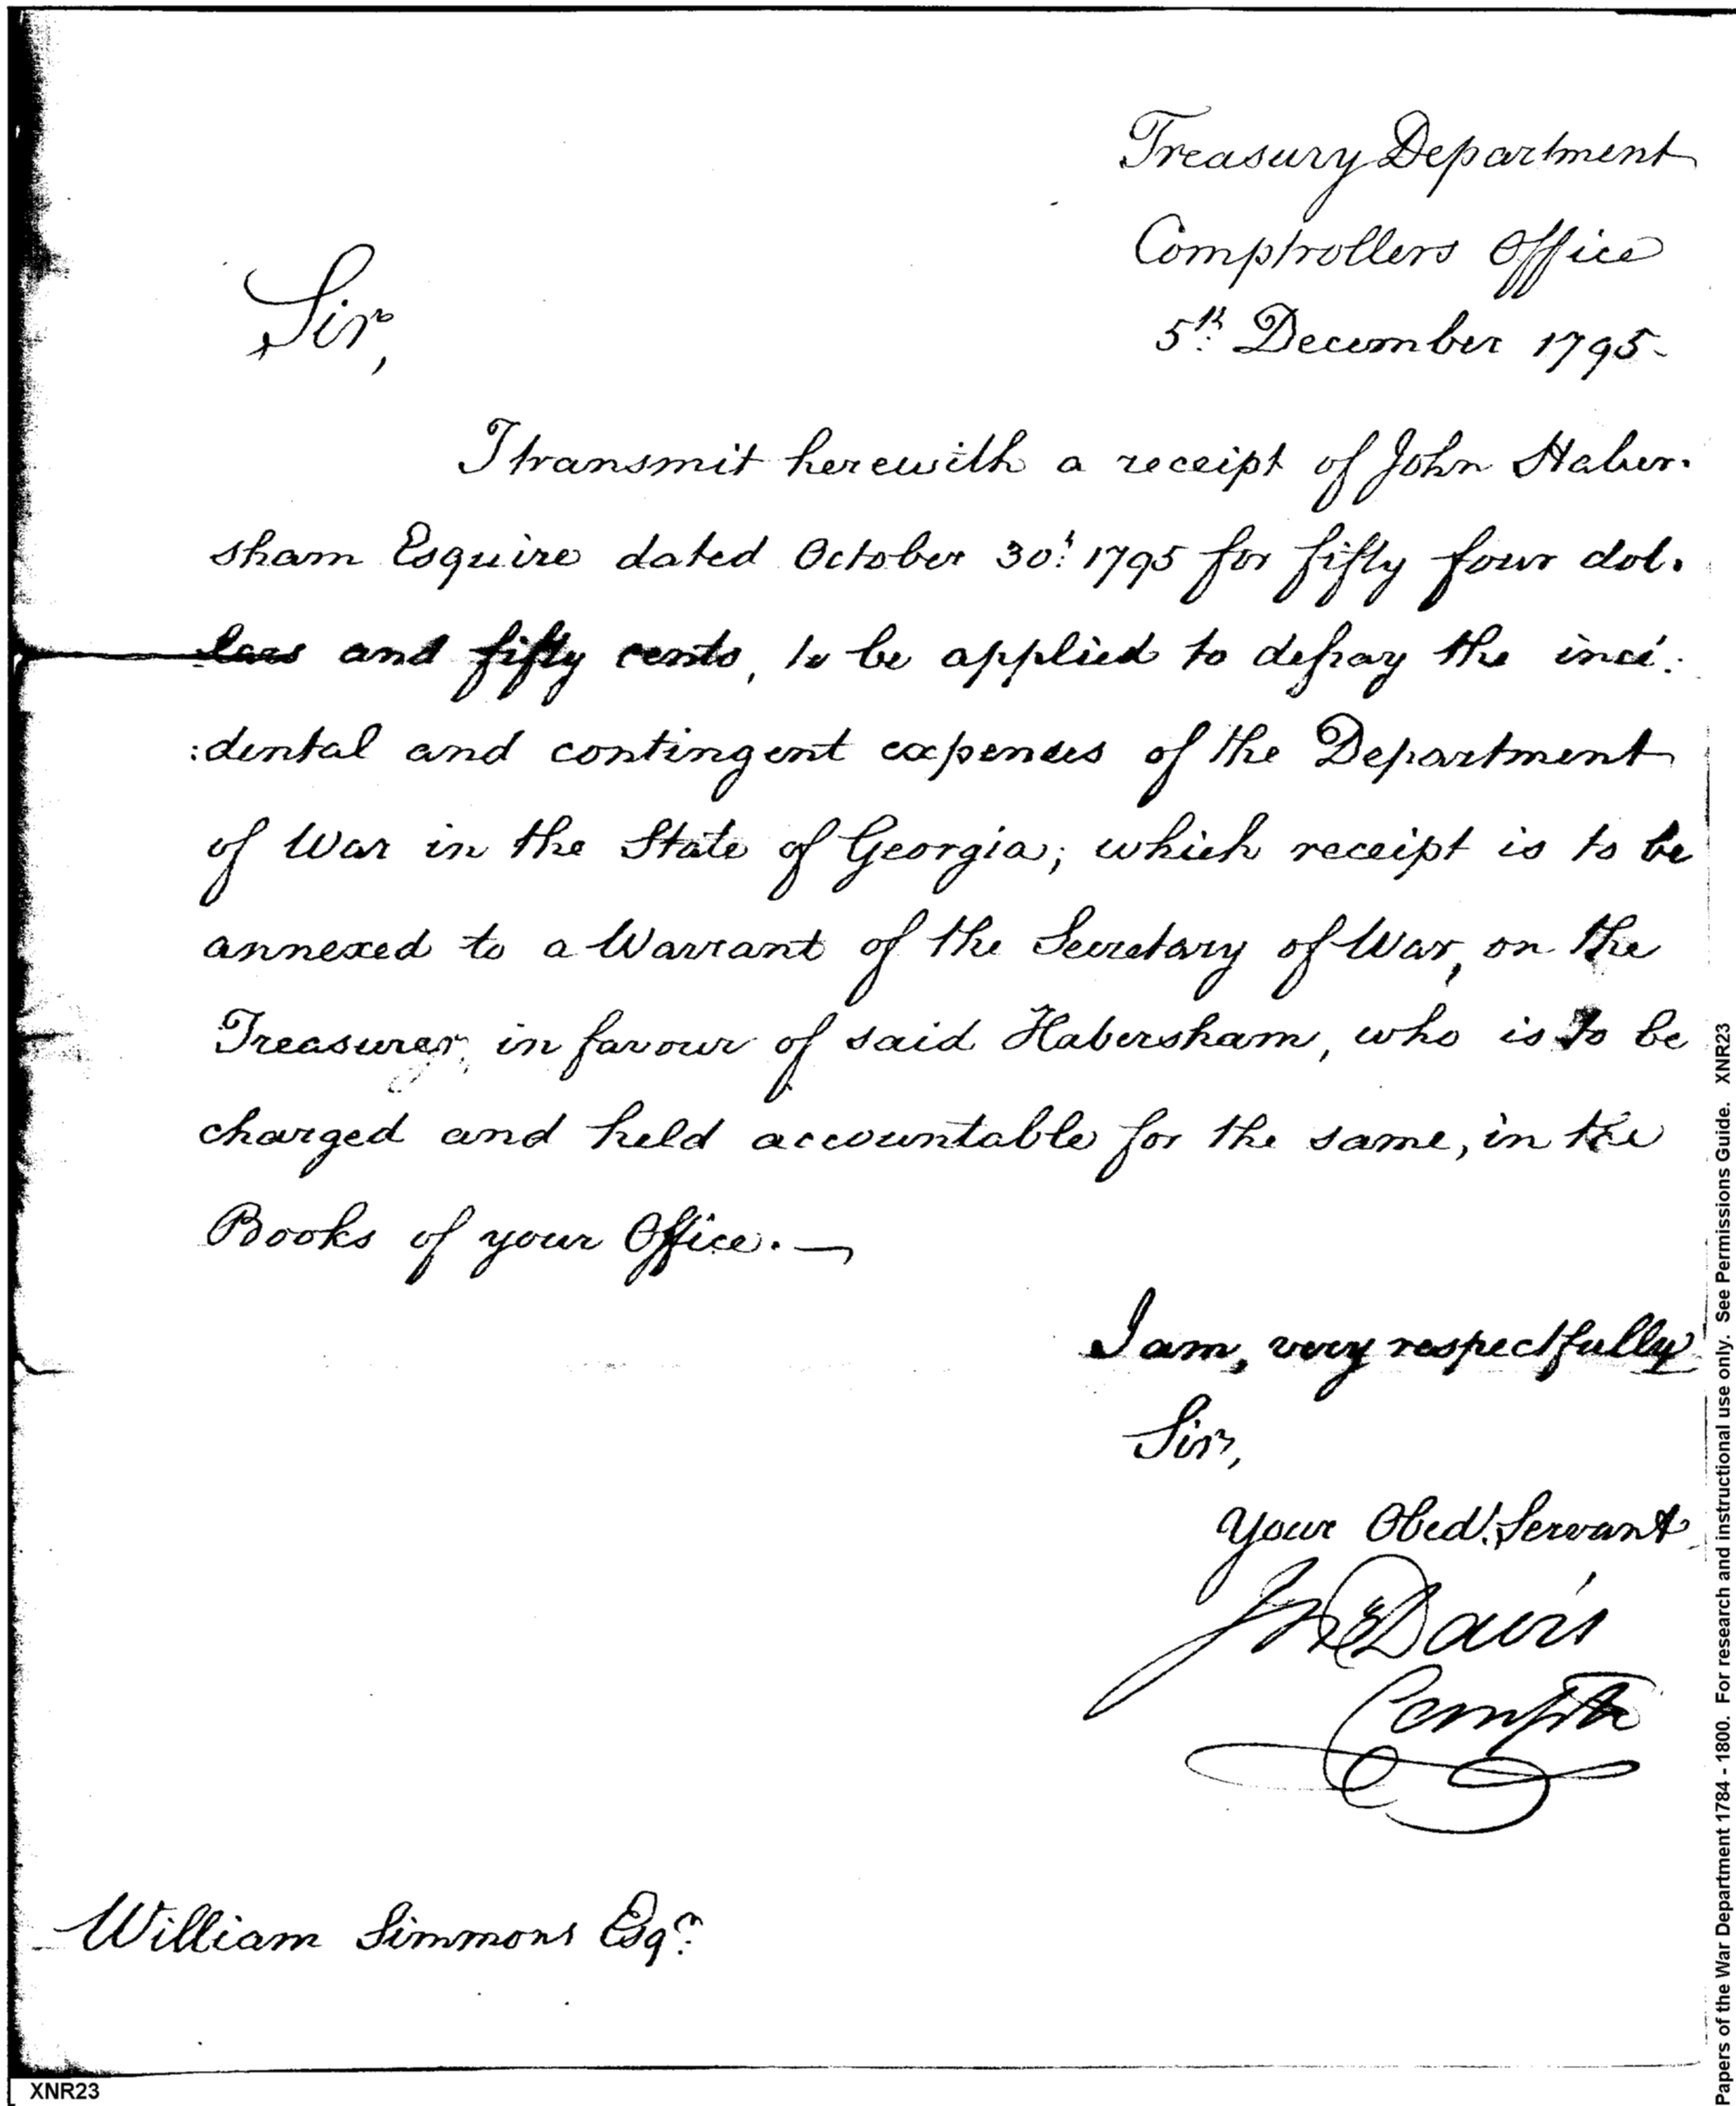 Treasury Department
Comptrollers Office
5th December 1795.
Sir,
I transmit herewith a receipt of John Haber.
sham Esquire dated October 30t 1795 for fifty four dol.
lars and fifty cents, to be applied to defray the inci:
:dental and contingent expenses of the Department
of War in the State of Georgia; which receipt is to be
annexed to a Warrant of the Secretary of War, on the
Treasurer, in favour of said Habersham, who is to be
charged and held accountable for the same, in the
Books of your Office. —
I am, very respectfully
Sir,
Your Obedt Servant
Jno Davis
Comptr
William Simmons Esqr
XNR23
Papers of the War Department 1784 - 1800. For research and instructional use only. See Permissions Guide. XNR23